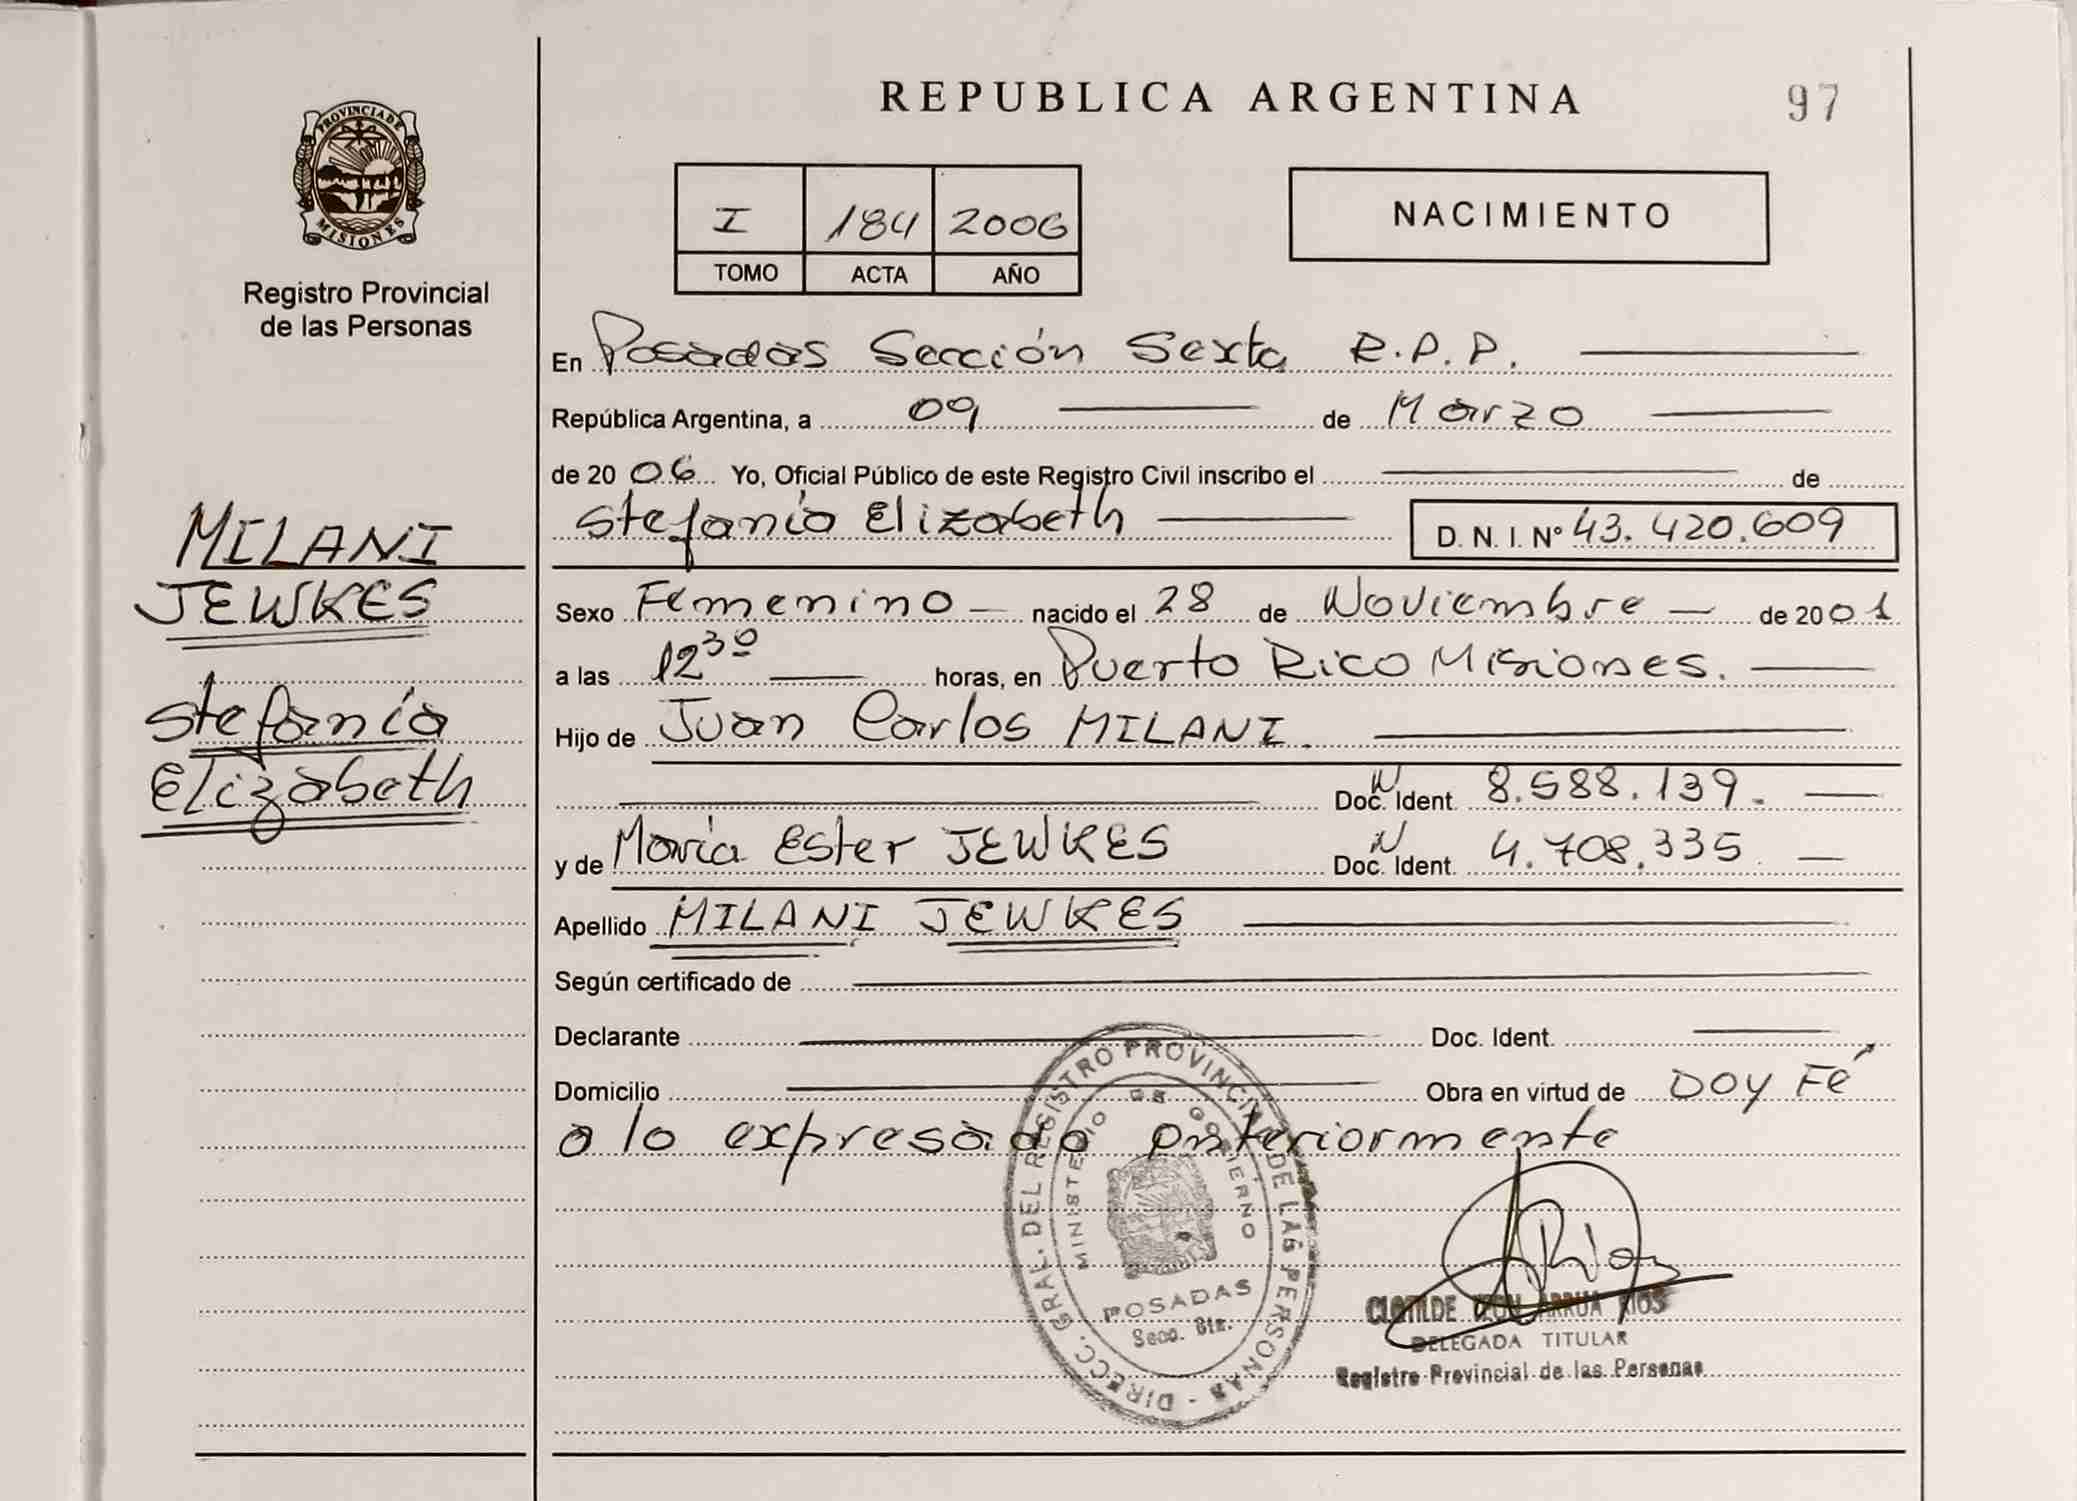 REPUBLICA ARGENTINA
97
PROVINCIA DE
MISIONES
Registro Provincial
de las Personas
I 184 2006
TOMO ACTA AÑO
NACIMIENTO
En Posadas Sección Sexta R.P.P.
República Argentina, a 09 de Marzo
de 20 06 Yo, Oficial Público de este Registro Civil inscribo el de
Stefanía Elizabeth D. N. I. Nº 43.420.609
MILANI
JEWKES
Stefanía
Elizabeth
Sexo Femenino nacido el 28 de Noviembre de 20 01
a las 12 30 horas, en Puerto Rico Misiones.
Hijo de Juan Carlos MILANI.
Doc. Ident. 8.588.139.
y de María Ester JEWKES Doc. Ident. 4.708.335
Apellido MILANI JEWKES
Según certificado de
Declarante Doc. Ident.
Domicilio Obra en virtud de DOY Fé
a lo expresado anteriormente
DIRECC. GRAL. DEL REGISTRO PROVINCIAL DE LAS PERSONAS
MINISTERIO DE GOBIERNO
POSADAS
Secc. 6ta.
CLOTILDE ARRUA RIOS
DELEGADA TITULAR
Registro Provincial de las Personas